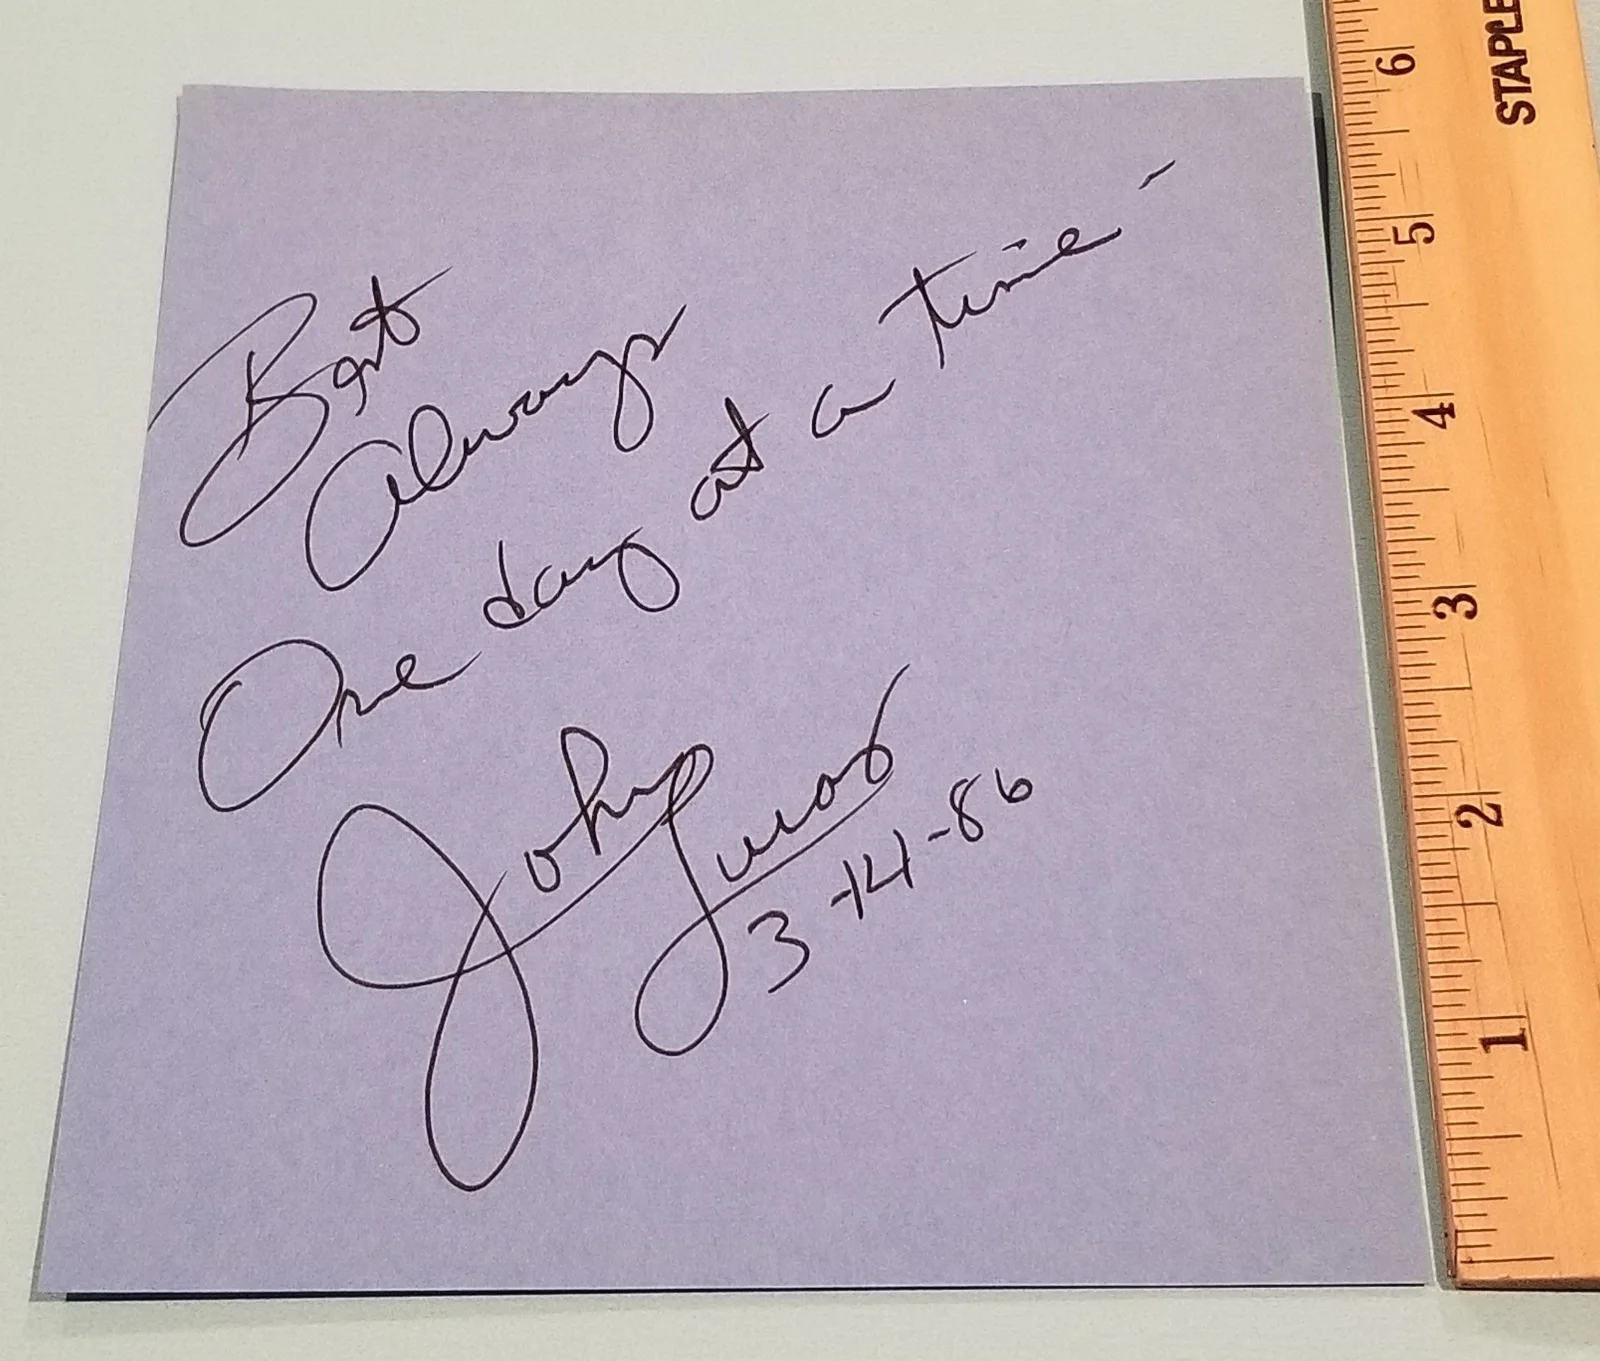 Best
Always
One day at a time -
John Lucas
3-14-86
STAPLE
6
5
4
3
2
1